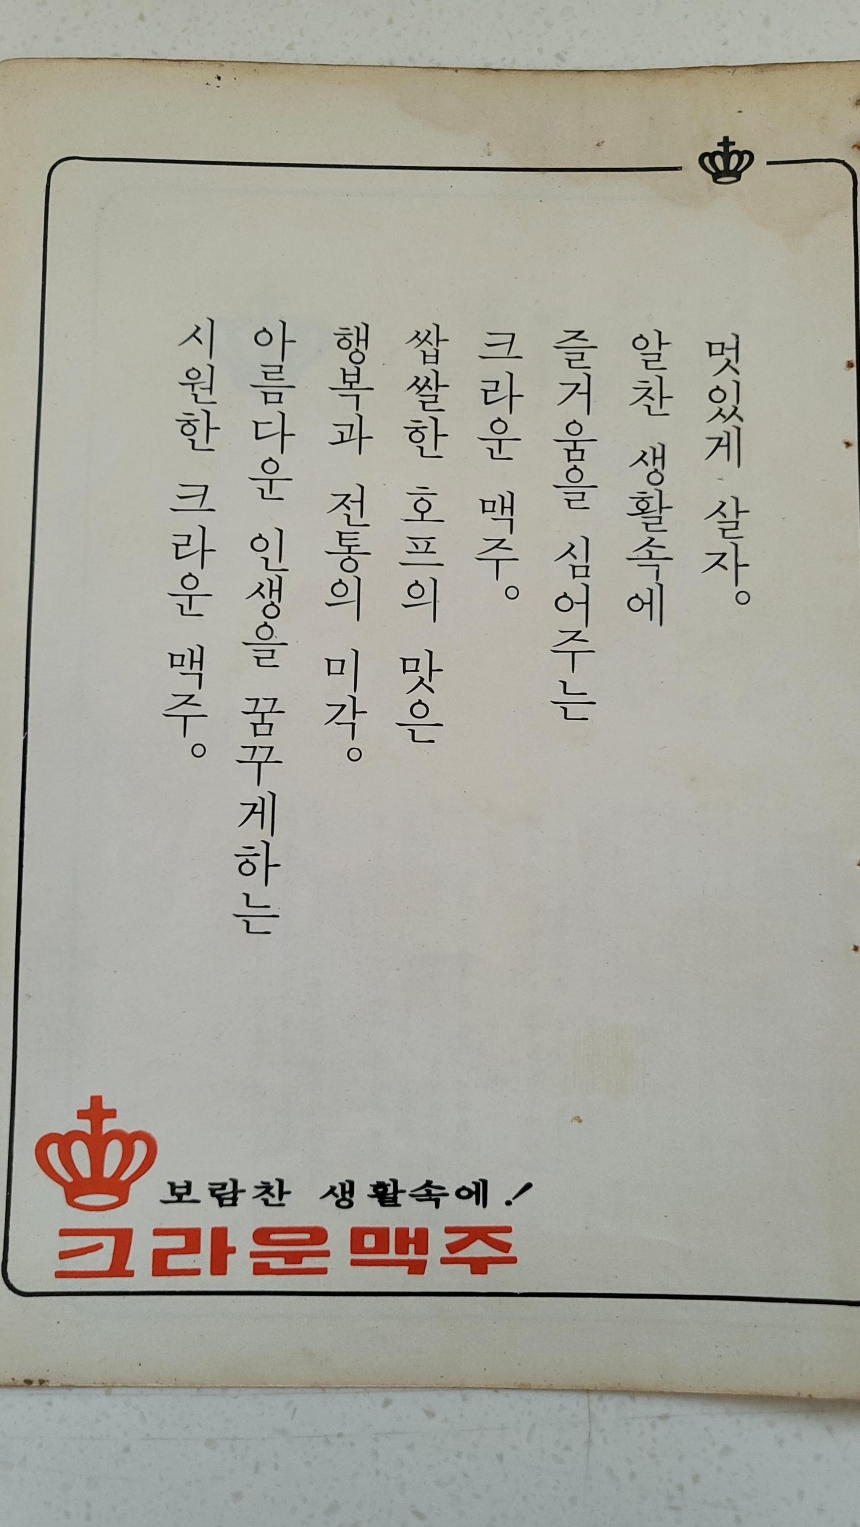 멋있게 살자。
알찬 생활속에
즐거움을 심어주는
크라운 맥주。
쌉쌀한 호프의 맛은
행복과 전통의 미각。
아름다운 인생을 꿈꾸게하는
시원한 크라운 맥주。
보람찬 생활속에!
크라운맥주